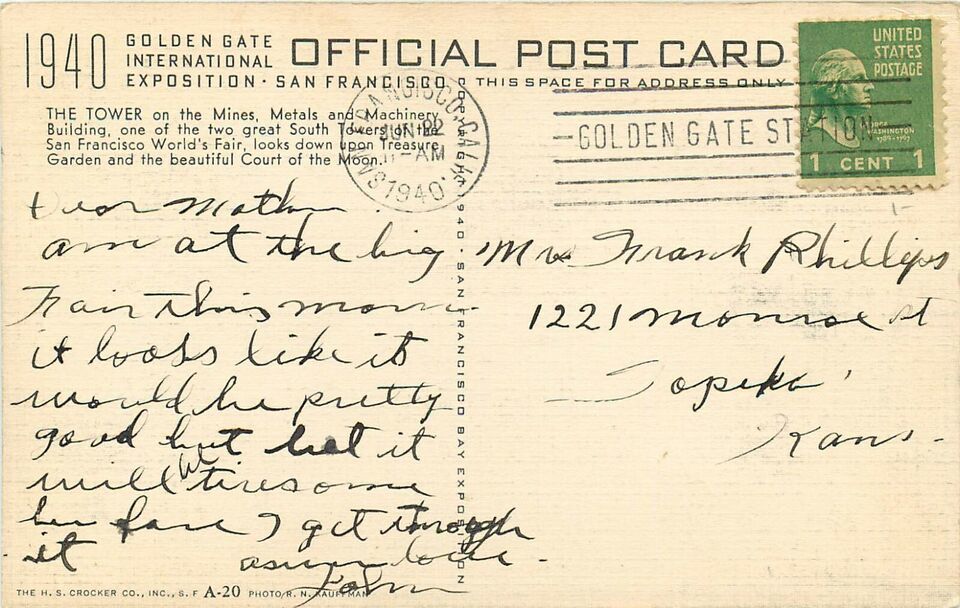 1940 GOLDEN GATE
INTERNATIONAL
EXPOSITION · SAN FRANCISCO
OFFICIAL POST CARD
THIS SPACE FOR ADDRESS ONLY
THE TOWER on the Mines, Metals and Machinery
Building, one of the two great South Towers of the
San Francisco World's Fair, looks down upon Treasure
Garden and the beautiful Court of the Moon.
SAN FRANCISCO, CALIF.
JUN 22
11-AM
1940
GOLDEN GATE STATION
UNITED
STATES
POSTAGE
GEORGE
WASHINGTON
1789-1797
1 CENT 1
Dear Mother.
am at the big
Fair this morn
it looks like it
would be pretty
good but bet it
will be tiresome
be fore I get through
it
love
John
Mrs Frank Phillips
1221 Monroe St
Topeka
Kans-
COPYRIGHT 1940 · SAN FRANCISCO BAY EXPOSITION
THE H. S. CROCKER CO., INC., S. F A-20 PHOTO/R. N. KAUFFMAN